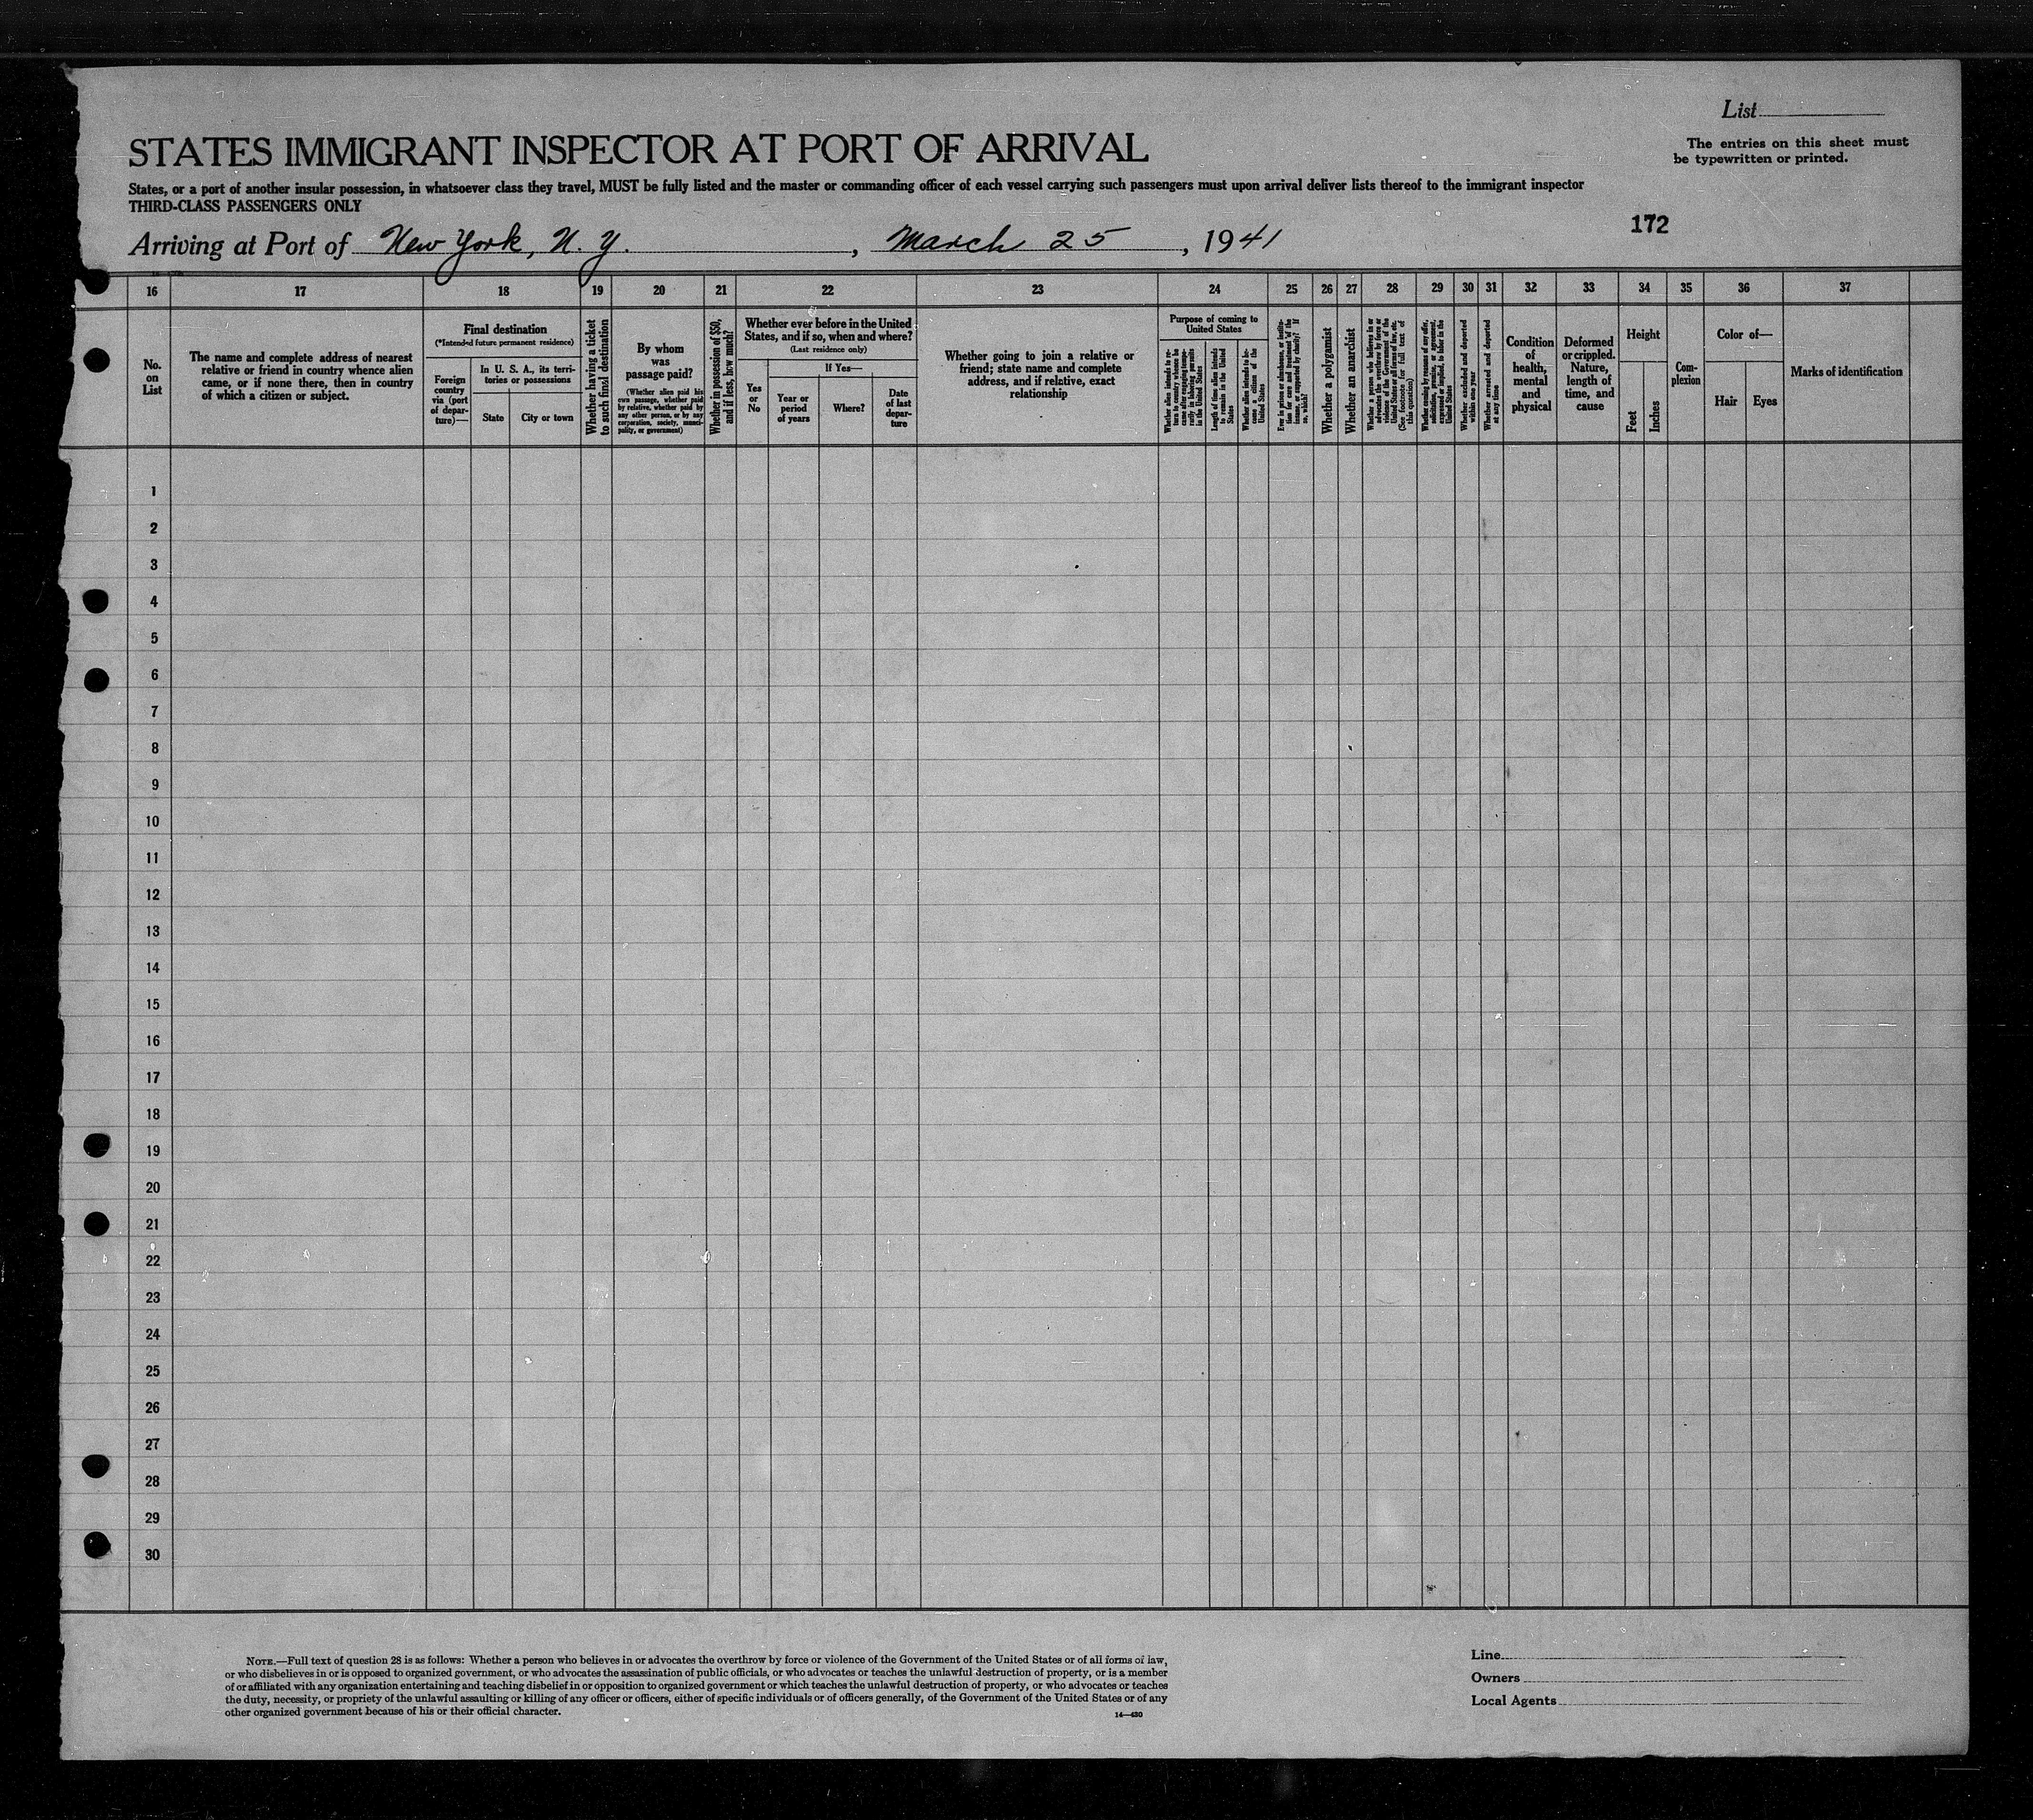 List
STATES IMMIGRANT INSPECTOR AT PORT OF ARRIVAL
The entries on this sheet must
be typewritten or printed.
States, or a port of another insular possession, in whatsoever class they travel, MUST be fully listed and the master or commanding officer of each vessel carrying such passengers must upon arrival deliver lists thereof to the immigrant inspector
THIRD-CLASS PASSENGERS ONLY
172
Arriving at Port of New York, N. Y. , March 25 , 1941
16 17 18 19 20 21 22 23 24 25 26 27 28 29 30 31 32 33 34 35 36 37
No.
on
List
The name and complete address of nearest
relative or friend in country whence alien
came, or if none there, then in country
of which a citizen or subject.
Final destination
(*Intended future permanent residence)
Foreign
country
via (port
of depar-
ture)—
In U. S. A., its terri-
tories or possessions
State
City or town
Whether having a ticket
to such final destination
By whom
was
passage paid?
(Whether alien paid his
own passage, whether paid
by relative, whether paid by
any other person, or by any
corporation, society, munici-
pality, or government)
Whether in possession of $50,
and if less, how much?
Whether ever before in the United
States, and if so, when and where?
(Last residence only)
Yes
or
No
If Yes—
Year or
period
of years
Where?
Date
of last
depar-
ture
Whether going to join a relative or
friend; state name and complete
address, and if relative, exact
relationship
Purpose of coming to
United States
Whether alien intends to re-
turn to country whence he
came after engaging tempo-
rarily in laboring pursuits
in the United States
Length of time alien intends
to remain in the United
States
Whether alien intends to be-
come a citizen of the
United States
Ever in prison or almshouse, or institu-
tion for care and treatment of the
insane, or supported by charity? If
so, which?
Whether a polygamist
Whether an anarchist
Whether a person who believes in or
advocates the overthrow by force or
violence of the Government of the
United States or all forms of law, etc.
(See footnote for full text of
this question)
Whether coming by reasons of any offer,
solicitation, promise, or agreement,
expressed or implied, to labor in the
United States
Whether excluded and deported
within one year
Whether arrested and deported
at any time
Condition
of
health,
mental
and
physical
Deformed
or crippled.
Nature,
length of
time, and
cause
Height
Feet
Inches
Com-
plexion
Color of—
Hair
Eyes
Marks of identification
1
2
3
4
5
6
7
8
9
10
11
12
13
14
15
16
17
18
19
20
21
22
23
24
25
26
27
28
29
30
NOTE.—Full text of question 28 is as follows: Whether a person who believes in or advocates the overthrow by force or violence of the Government of the United States or of all forms of law,
or who disbelieves in or is opposed to organized government, or who advocates the assassination of public officials, or who advocates or teaches the unlawful destruction of property, or is a member
of or affiliated with any organization entertaining and teaching disbelief in or opposition to organized government or which teaches the unlawful destruction of property, or who advocates or teaches
the duty, necessity, or propriety of the unlawful assaulting or killing of any officer or officers, either of specific individuals or of officers generally, of the Government of the United States or of any
other organized government because of his or their official character.
14—430
Line
Owners
Local Agents